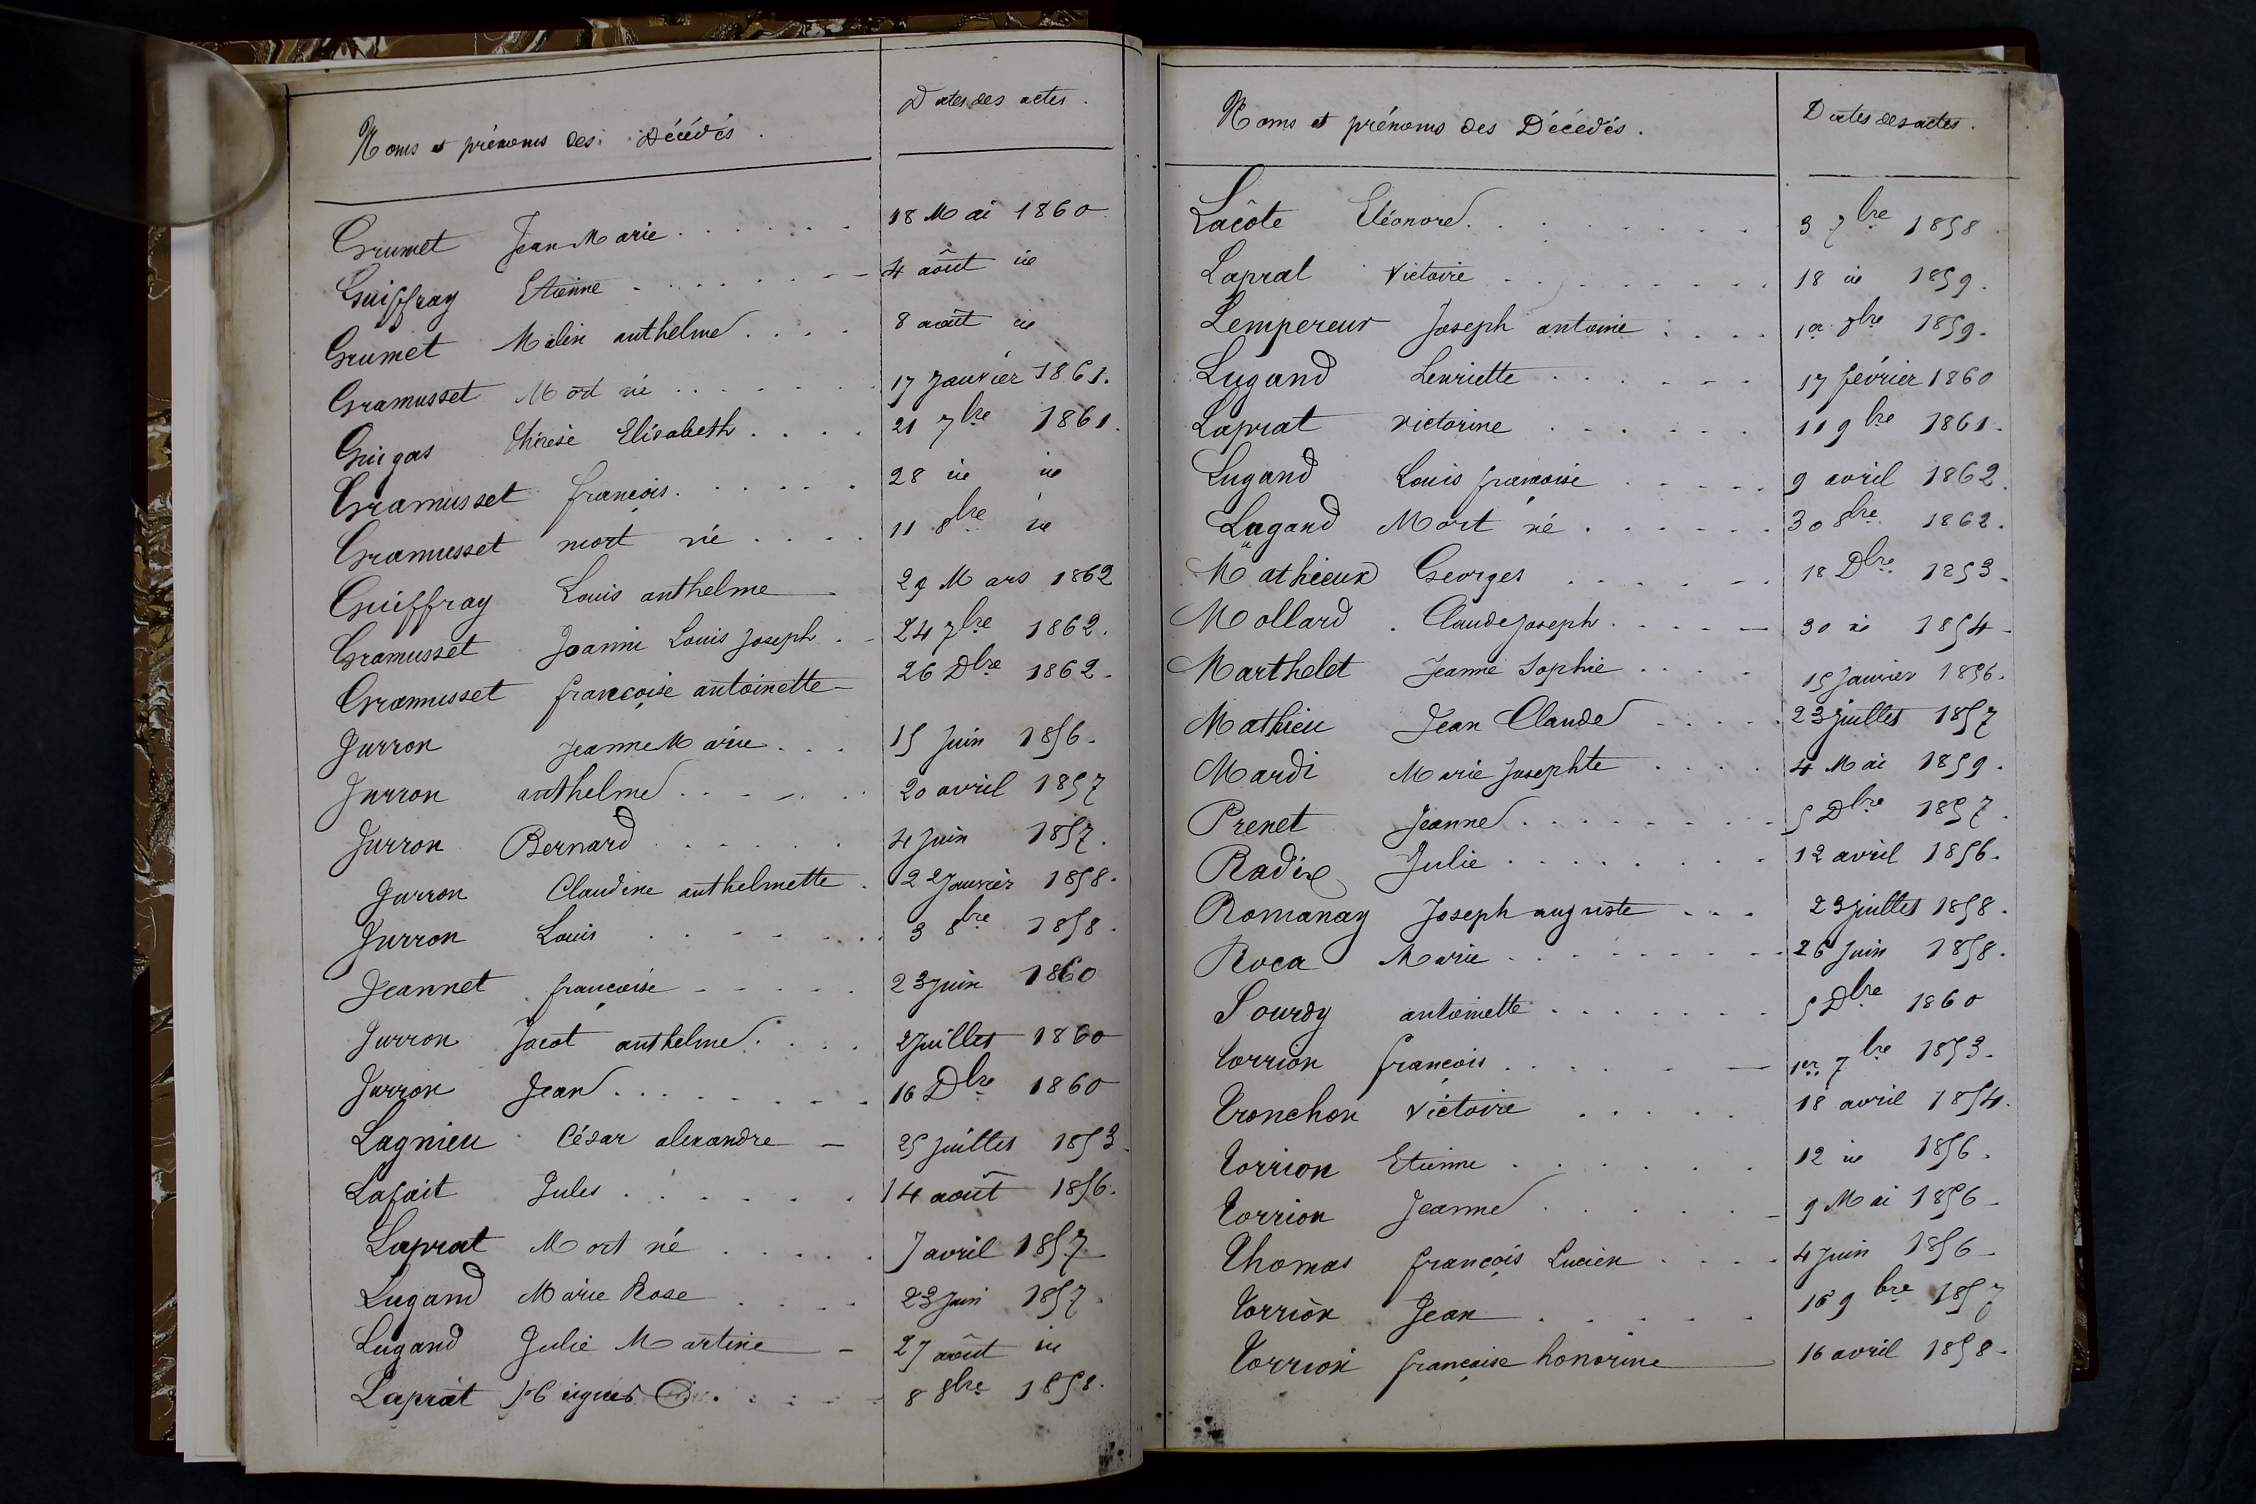 Noms et prénoms des Décédés. Dates des actes.
Grumet Jean Marie 18 Mai 1860
Guiffray Etienne 4 août id
Grumet Melin anthelme 8 août id
Gramusset Mort né 17 Janvier 1861.
Guigas thérèse Elisabeth 21 7bre 1861.
Gramusset françois 28 id id
Gramusset mort né 11 8bre id
Guiffray Louis anthelme 29 Mars 1862
Gramusset Joanni Louis Joseph 24 7bre 1862.
Gramusset françoise antoinette 26 Dbre 1862.
Jurron Jeanne Marie 15 Juin 1856.
Jurron anthelme 20 avril 1857
Jurron Bernard 4 Juin 1857.
Jurron Claudine anthelmette 22 Janvier 1858.
Jurron Louis 3 8bre 1858.
Jeannet françoise 23 Juin 1860
Jurron Jacot anthelme 2 Juillet 1860
Jurron Jean 16 Dbre 1860
Lagnieu César alexandre 25 Juillet 1853.
Lafait Jules 14 août 1856.
Laprat Mort né 7 avril 1857
Lugand Marie Rose 23 Juin 1857.
Lugand Julie Martine 27 août id
Laprat 8 8bre 1858.
Noms et prénoms des Décédés. Dates des actes.
Lacôte Eléonore 3 7bre 1858
Laprat Victoire 18 id 1859.
Lempereur Joseph antoine 1er 1859.
Lugand henriette 17 février 1860
Laprat victorine 11 9bre 1861.
Lugand Louis françoise 9 avril 1862.
Lugand Mort né 30 8bre 1862.
Mathieux Georges 18 Dbre 1853.
Mollard Claude Joseph 30 id 1854
Marthelet Jeanne Sophie 15 Janvier 1856.
Mathieu Jean Claude 23 Juillet 1857
Mardi Marie Josephte 4 Mai 1859.
Prenet Jeanne 5 Dbre 1857.
Radix Julie 12 avril 1856.
Romanay Joseph auguste 23 Juillet 1858.
Roca Marie 26 Juin 1858.
Sourdy antoinette 5 Dbre 1860
torrion françois 1er 7bre 1853.
tronchon victoire 18 avril 1854.
torrion Etienne 12 id 1856.
torrion Jeanne 9 Mai 1856
thomas françois Lucien 4 Juin 1856
torrion Jean 16 9bre 1857
torrion françoise honorine 16 avril 1858.